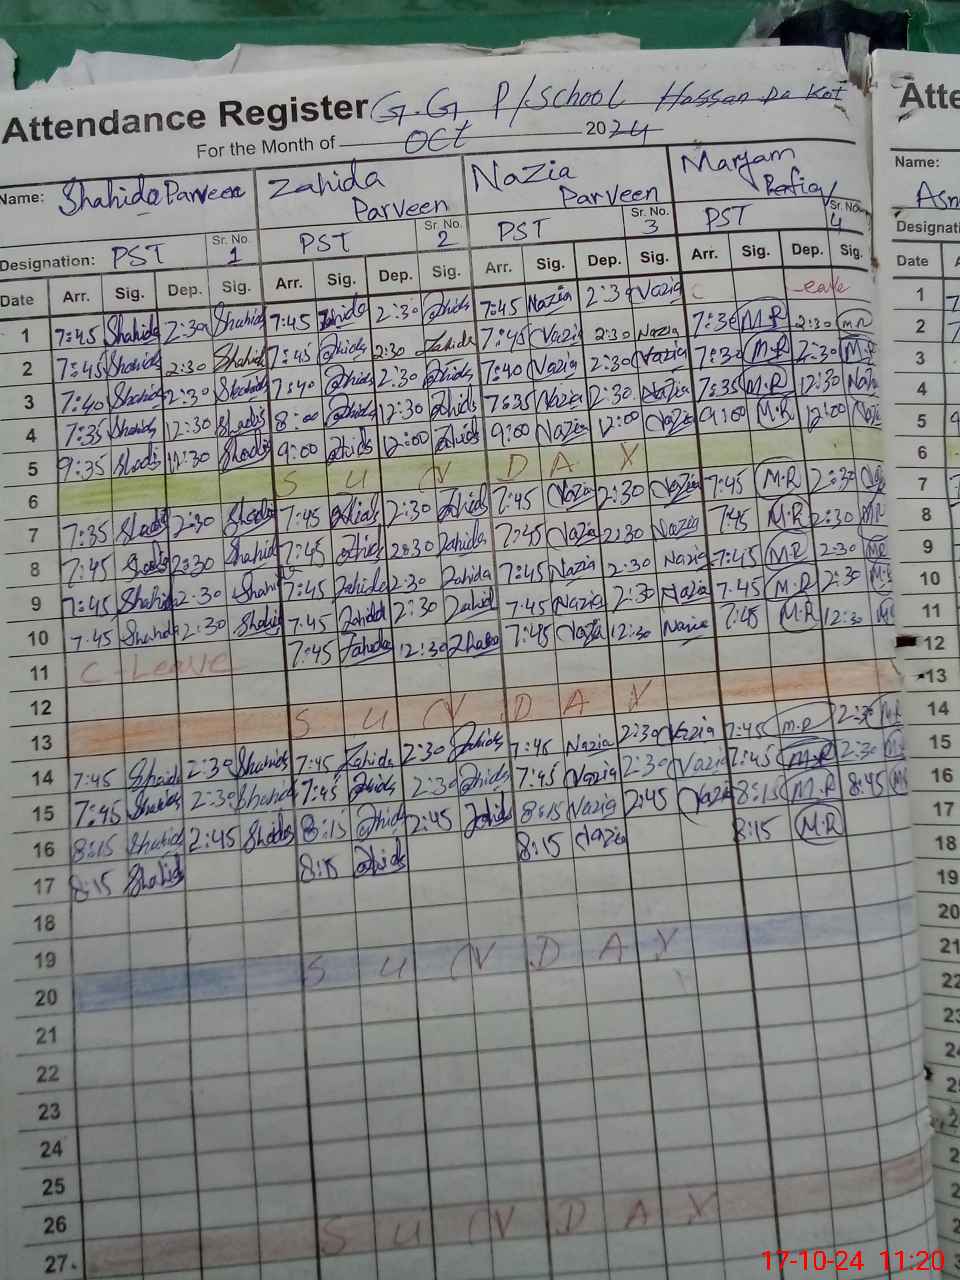 Attendance Register G.G P/School Hassan Da Kot
For the Month of OCT 2024
Name: Shahida Parveen Zahida Parveen Nazia Parveen Maryam Rafiq
Designation: PST Sr. No. 1 PST Sr. No. 2 PST Sr. No. 3 PST Sr. No. 4
Date Arr. Sig. Dep. Sig. Arr. Sig. Dep. Sig. Arr. Sig. Dep. Sig. Arr. Sig. Dep. Sig.
1 7:45 Shahida 2:30 Shahida 7:45 Zahida 2:30 Zahida 7:45 Nazia 2:30 Nazia C Leave
2 7:45 Shahida 2:30 Shahida 7:45 Zahida 2:30 Zahida 7:45 Nazia 2:30 Nazia 7:30 M.R 2:30 M.R
3 7:40 Shahida 2:30 Shahida 7:40 Zahida 2:30 Zahida 7:40 Nazia 2:30 Nazia 7:30 M.R 2:30 M.R
4 7:35 Shahida 12:30 Shahida 8:00 Zahida 12:30 Zahida 7:35 Nazia 2:30 Nazia 7:35 M.R 12:30
5 9:35 Shahida 12:30 Shahida 9:00 Zahida 12:00 Zahida 9:00 Nazia 12:00 Nazia 9:00 M.R 12:00
6 S U N D A Y
7 7:35 Shahida 2:30 Shahida 7:45 Zahida 2:30 Zahida 7:45 Nazia 2:30 Nazia 7:45 M.R 2:30
8 7:45 Shahida 2:30 Shahida 7:45 Zahida 2:30 Zahida 7:45 Nazia 2:30 Nazia 7:45 M.R 2:30 M.R
9 7:45 Shahida 2:30 Shahida 7:45 Zahida 2:30 Zahida 7:45 Nazia 2:30 Nazia 7:45 M.R 2:30 M.R
10 7:45 Shahida 2:30 Shahida 7:45 Zahida 2:30 Zahida 7:45 Nazia 2:30 Nazia 7:45 M.R 2:30 M.R
11 C-Leave 7:45 Zahida 12:30 Zahida 7:45 Nazia 12:30 Nazia 7:45 M.R 12:30
12
13 S U N D A Y
14 7:45 Shahida 2:30 Shahida 7:45 Zahida 2:30 Zahida 7:45 Nazia 2:30 Nazia 7:45 M.R 2:30 M.R
15 7:45 Shahida 2:30 Shahida 7:45 Zahida 2:30 Zahida 7:45 Nazia 2:30 Nazia 7:45 M.R 2:30
16 8:15 Shahida 2:45 Shahida 8:15 Zahida 2:45 Zahida 8:15 Nazia 2:45 Nazia 8:15 M.R 8:45
17 8:15 Shahid 8:15 Zahida 8:15 Nazia 8:15 M.R
18
19
20 S U N D A Y
21
22
23
24
25
26
27 S U N D A Y
Atte
Name: Asm
Designati
Date A
1
2
3
4
5
6
7
8
9
10
11
12
13
14
15
16
17
18
19
20
21
22
17-10-24 11:20